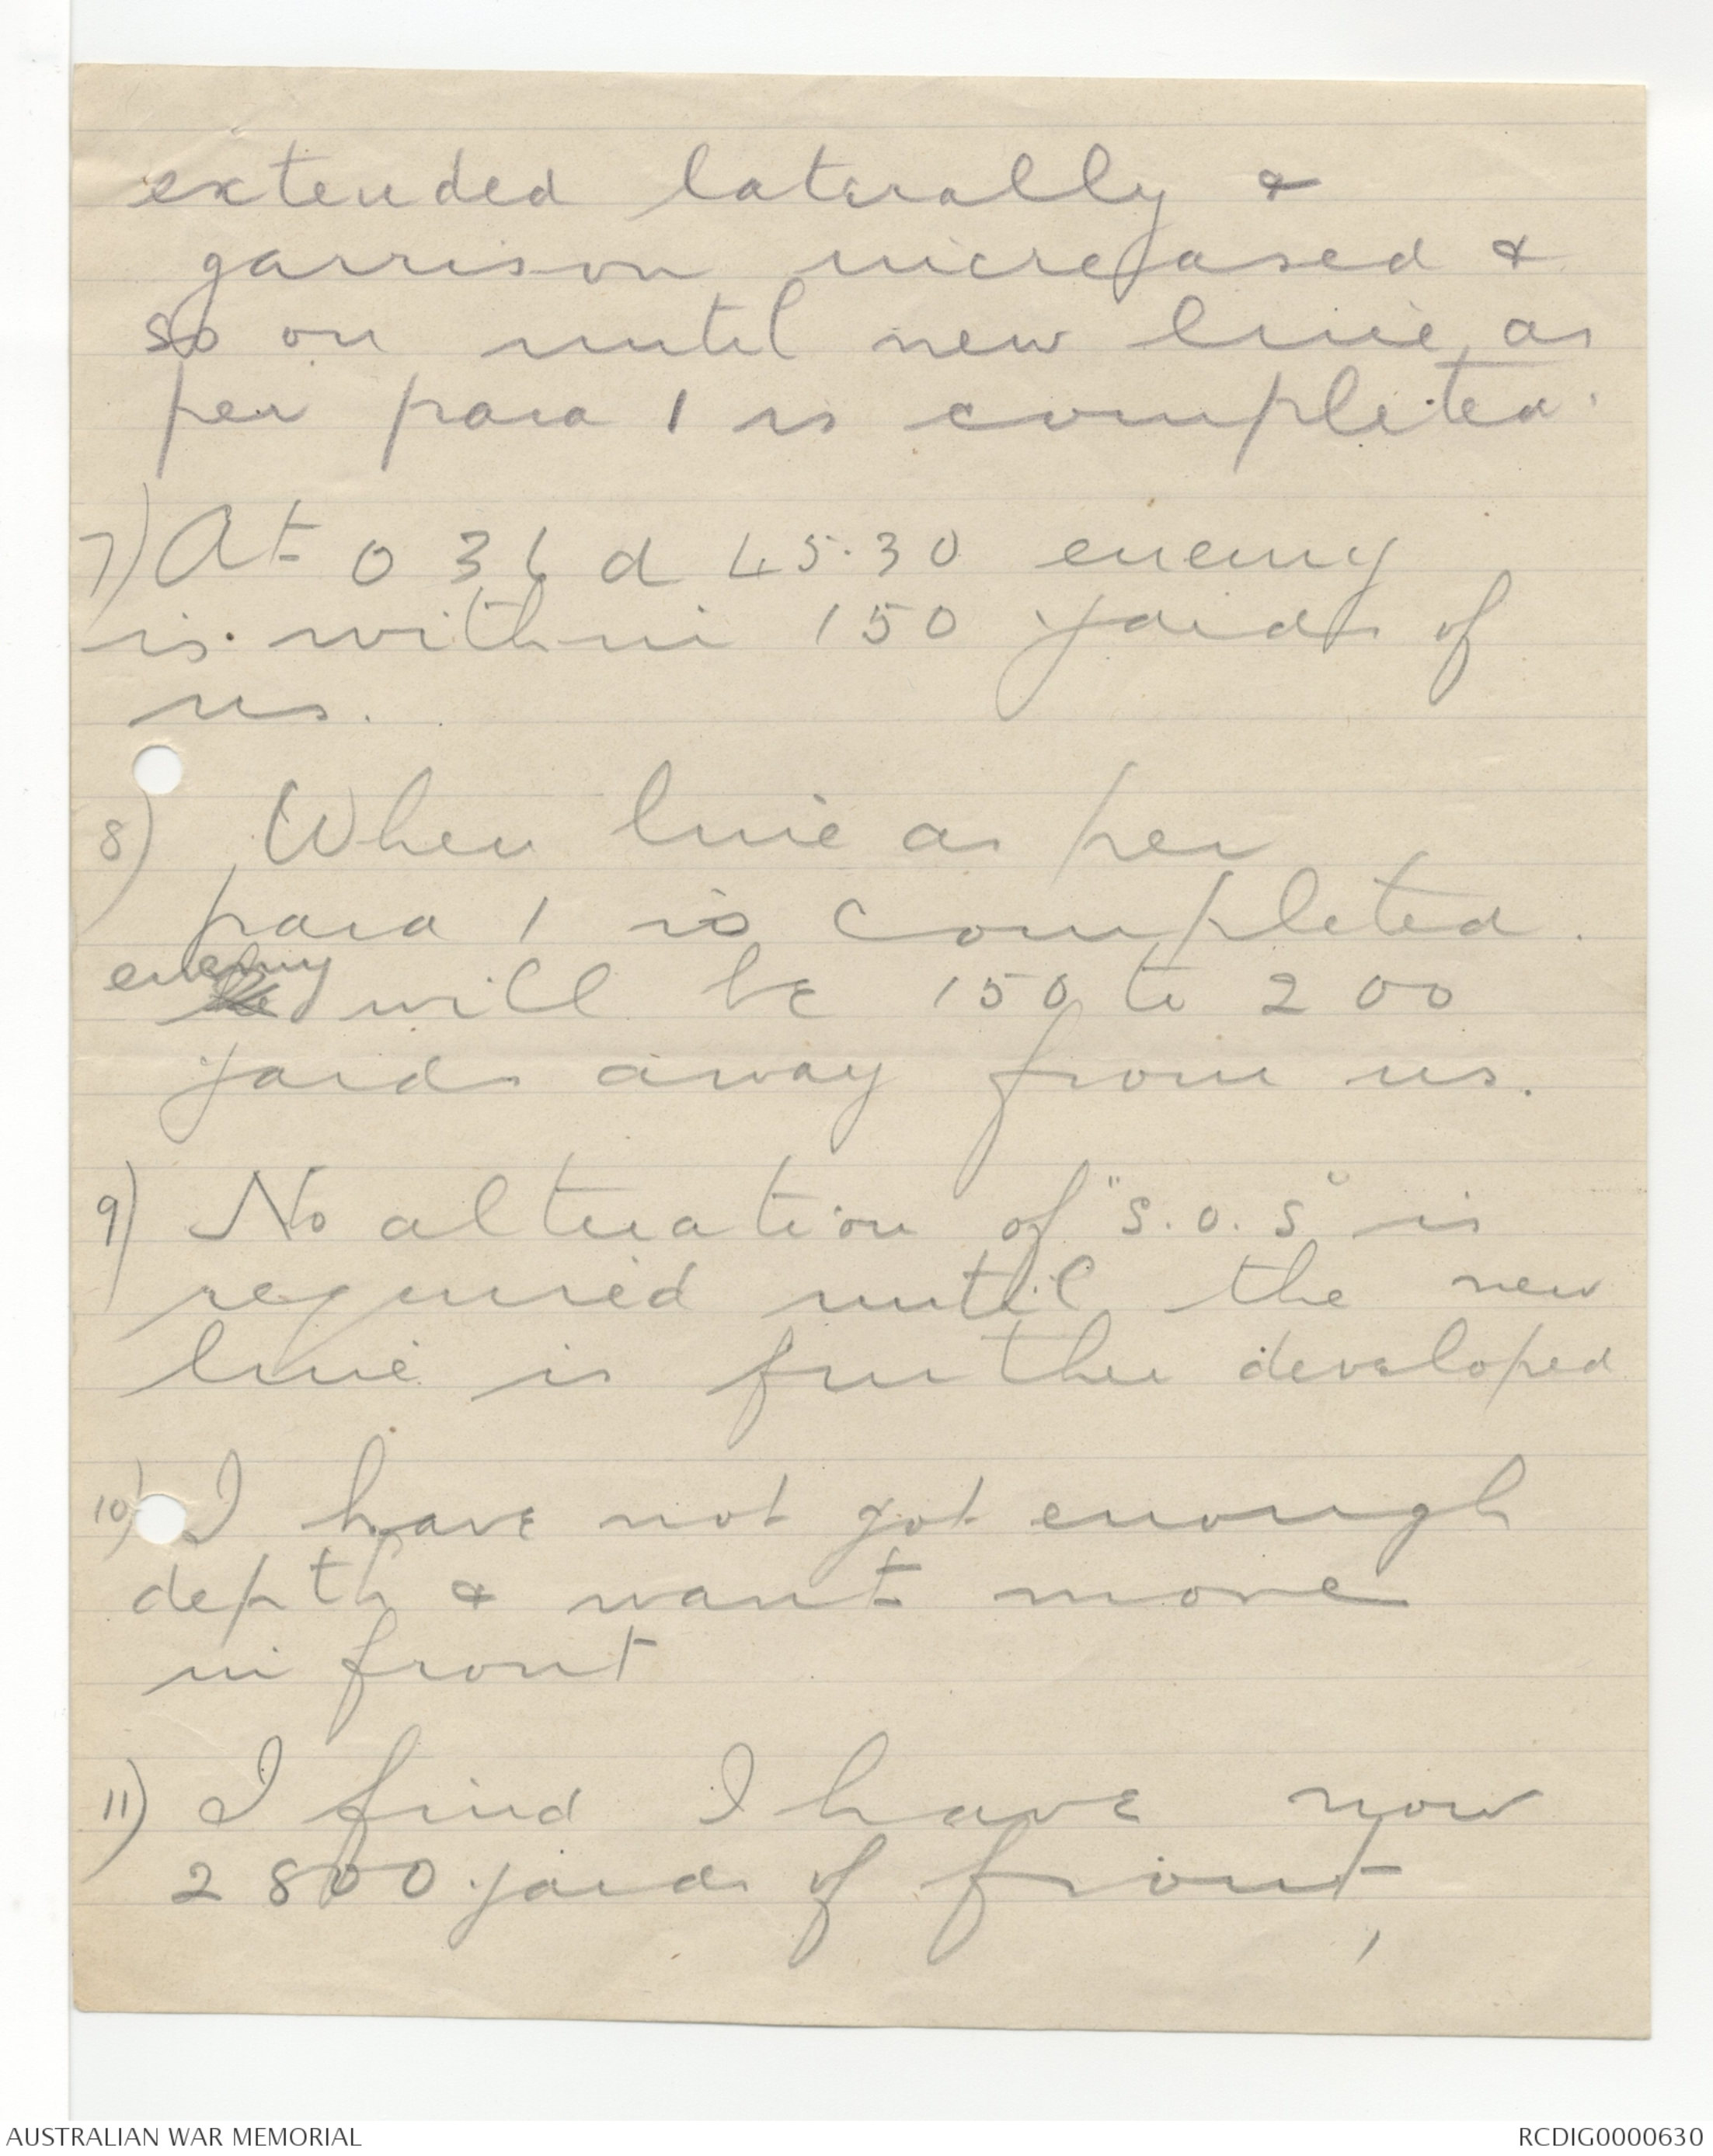 extended laterally &
garrison increased &
so on until new line as
per para 1 is completed.
7) At O 36 d 45.30 enemy
is within 150 yards of
us.
8) When line as per
para 1 is completed.
enemy will be 150 to 200
yards away from us.
9) No alteration of "S.O.S" is
required until the new
line is further developed
10) I have not got enough
depth & want more
in front
11) I find I have now
2800 yards of front,
AUSTRALIAN WAR MEMORIAL
RCDIG0000630